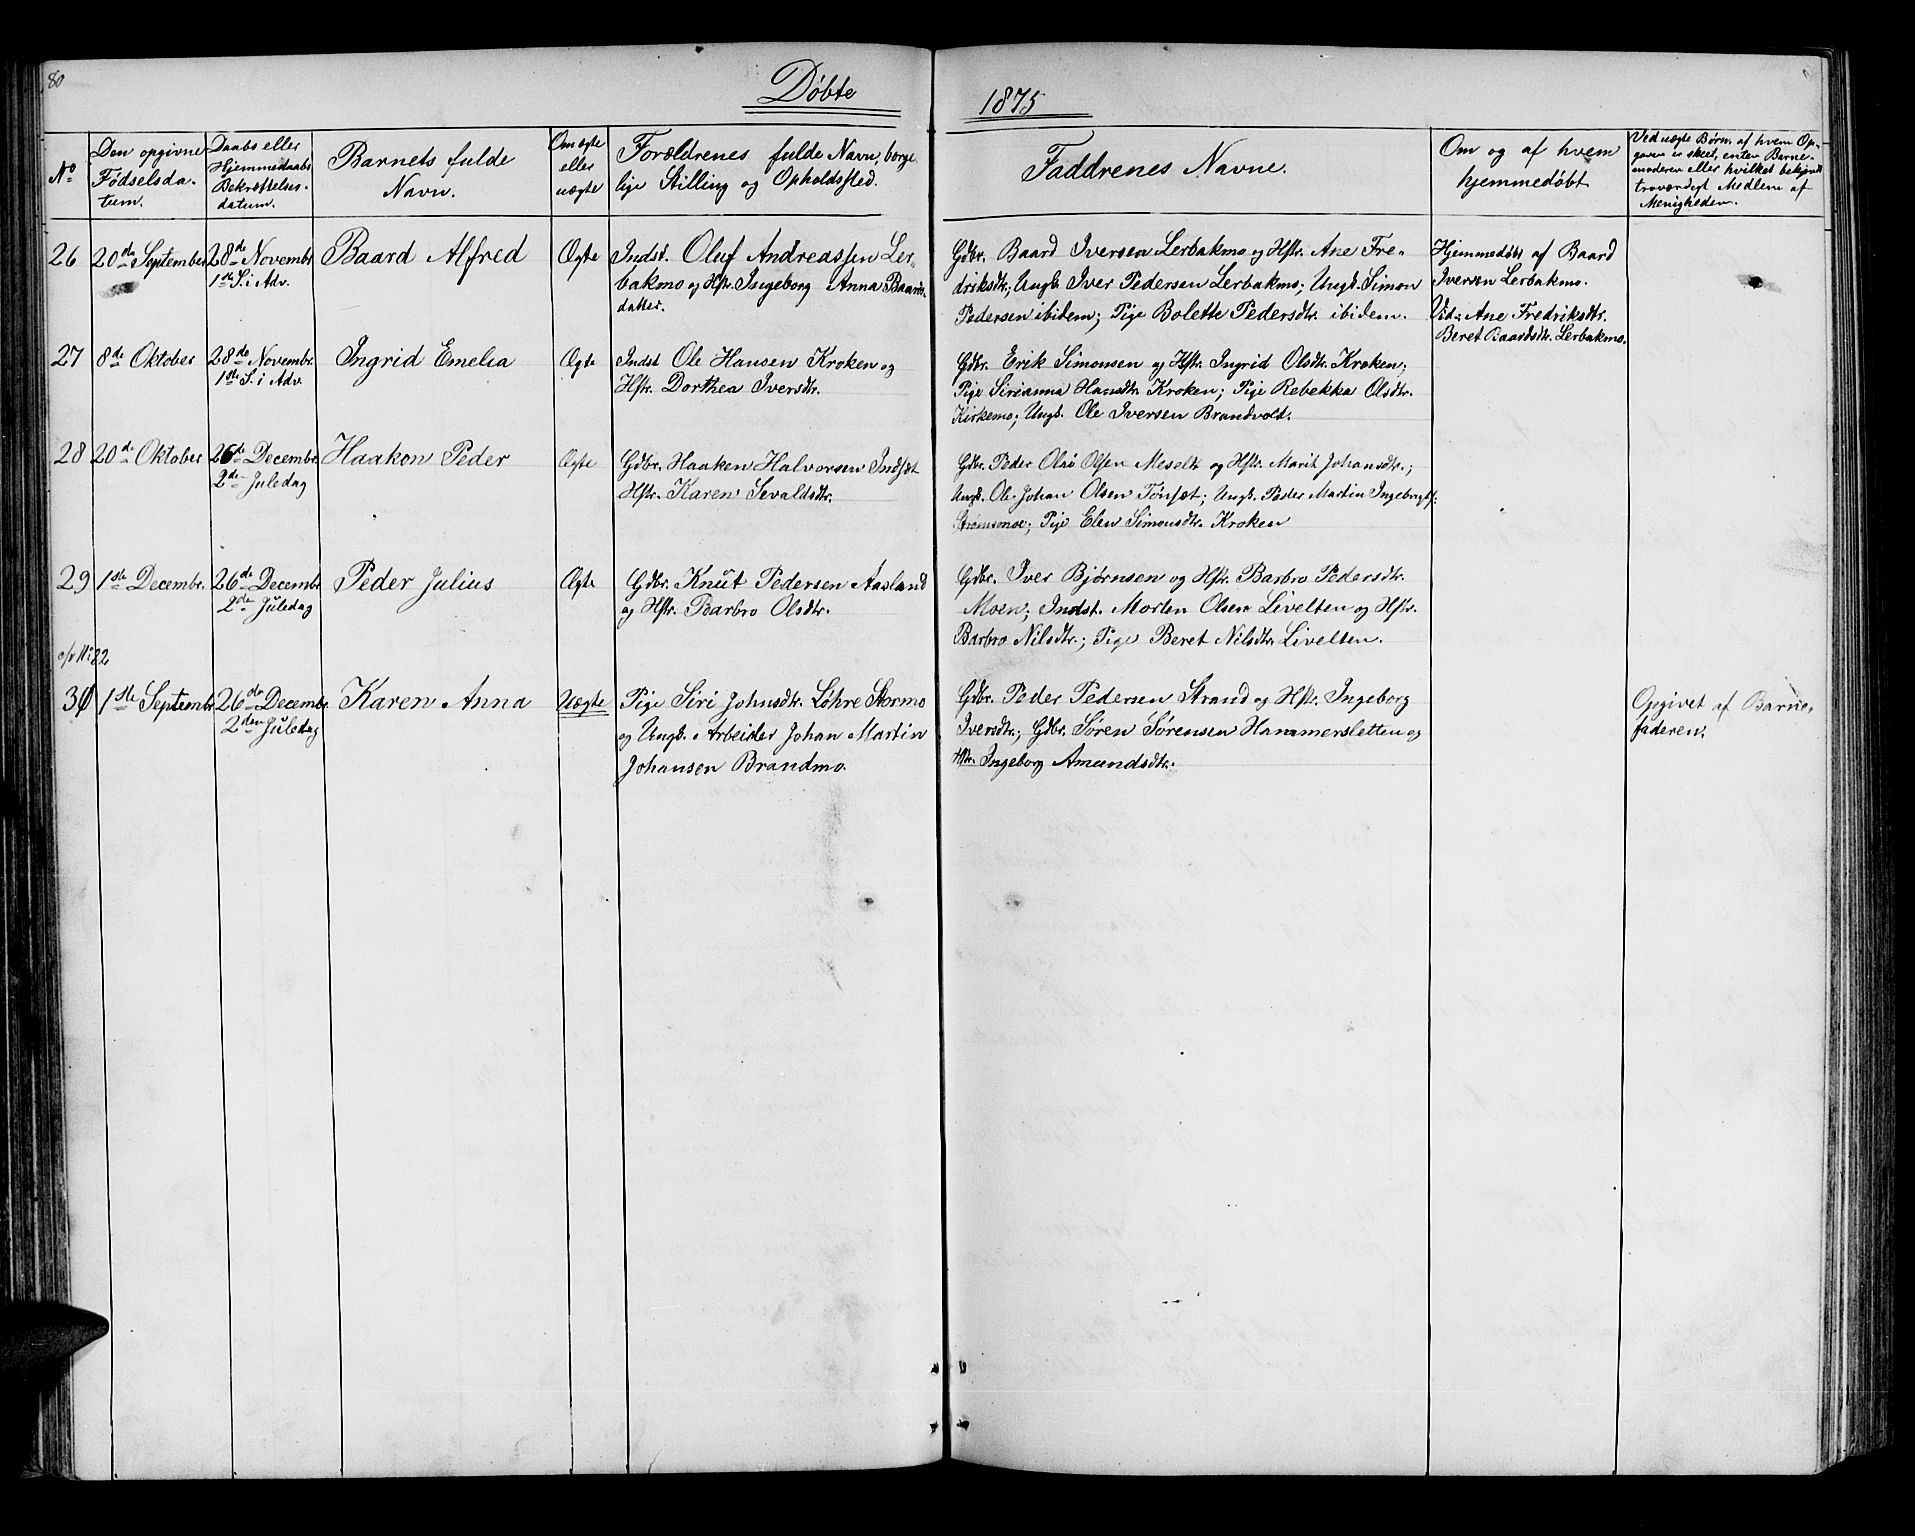 80
Døbte
1875
No
Den opgivne
Fødselsda-
tum.
Daabs eller
Hjemmedaabs
Bekræftelses-
datum.
Barnets fulde
Navn.
Om ægte
eller
uægte
Forældrenes fulde Navn, borge
lige Stilling og Opholdssted.
Faddrenes Navne.
Om og af hvem
hjemmedøbt
Ved uægte Børn, af hvem Op-
gaven er skeet, enten Barne-
moderen eller hvilket bekjendt
troværdigt Medlem af
Menigheden.
26
20de September
28de Novembr
1ste S. i Adv.
Baard Alfred
Ægte
Indst. Oluf Andreassen Ler-
bakmo og Hstr. Ingeborg Anna Baards-
datter.
Gdbr. Baard Iversen Lerbakmo og Hstr. Ane Fre-
driksdtr; Ungk. Iver Pedersen Lerbakmo; Ungk. Simon
Pedersen ibidem; Pige Bolette Pedersdtr. ibidem.
Hjemmedøbt af Baard
Iversen Lerbakmo.
Vid: Ane Fredriksdtr.
Beret Baardsdtr. Lerbakmo.
27
8de Oktober
28de Novembr.
1ste S. i Adv.
Ingrid Emelia
Ægte
Indst Ole Hansen Kroken og
Hstr. Dorthea Iversdtr.
Gdbr. Erik Simonsen og Hstr. Ingrid Olsdtr. Kroken;
Pige Sirianna Hansdtr. Kroken; Pige Rebekka Olsdtr.
Kirkemo; Ungk. Ole Iversen Brandvold.
28
20de Oktober
26de Decembr.
2de Juledag
Haakon Peder
Ægte
Gdbr. Haaken Halvorsen Indset
Hstr. Karen Sevaldsdtr.
Gdbr. Peder Olsen Meselt og Hstr. Marit Johansdtr.;
Ungk. Ole Johan Olsen Tønset; Ungk. Peder Martin
Strømsmoe; Pige Elen Simonsdtr. Kroken
29
1ste Decembr.
26de Decembr
2de Juledag
Peder Julius
Ægte
Gdbr. Knut Pedersen Aasland
og Hstr. Barbro Olsdtr.
Gdbr. Iver Bjørnsen og Hstr. Barbro Pedersdtr.
Moen; Indst. Morten Olsen Livelten og Hstr.
Barbro Nilsdtr.; Pige Beret Nilsdtr. Livelten.
30
1ste Septembr
26de Decembr.
2den Juledag
Karen Anna
Uægte
Pige Siri Johnsdtr. Løhre Stormo
og Ungk. Arbeider Johan Martin
Johansen Brandmo.
Gdbr. Peder Pedersen Strand og Hstr. Ingeborg
Iversdtr.; Gdbr. Søren Sørensen Hammersletten og
Hstr. Ingeborg Amundsdtr.
Opgivet af Barne-
faderen.